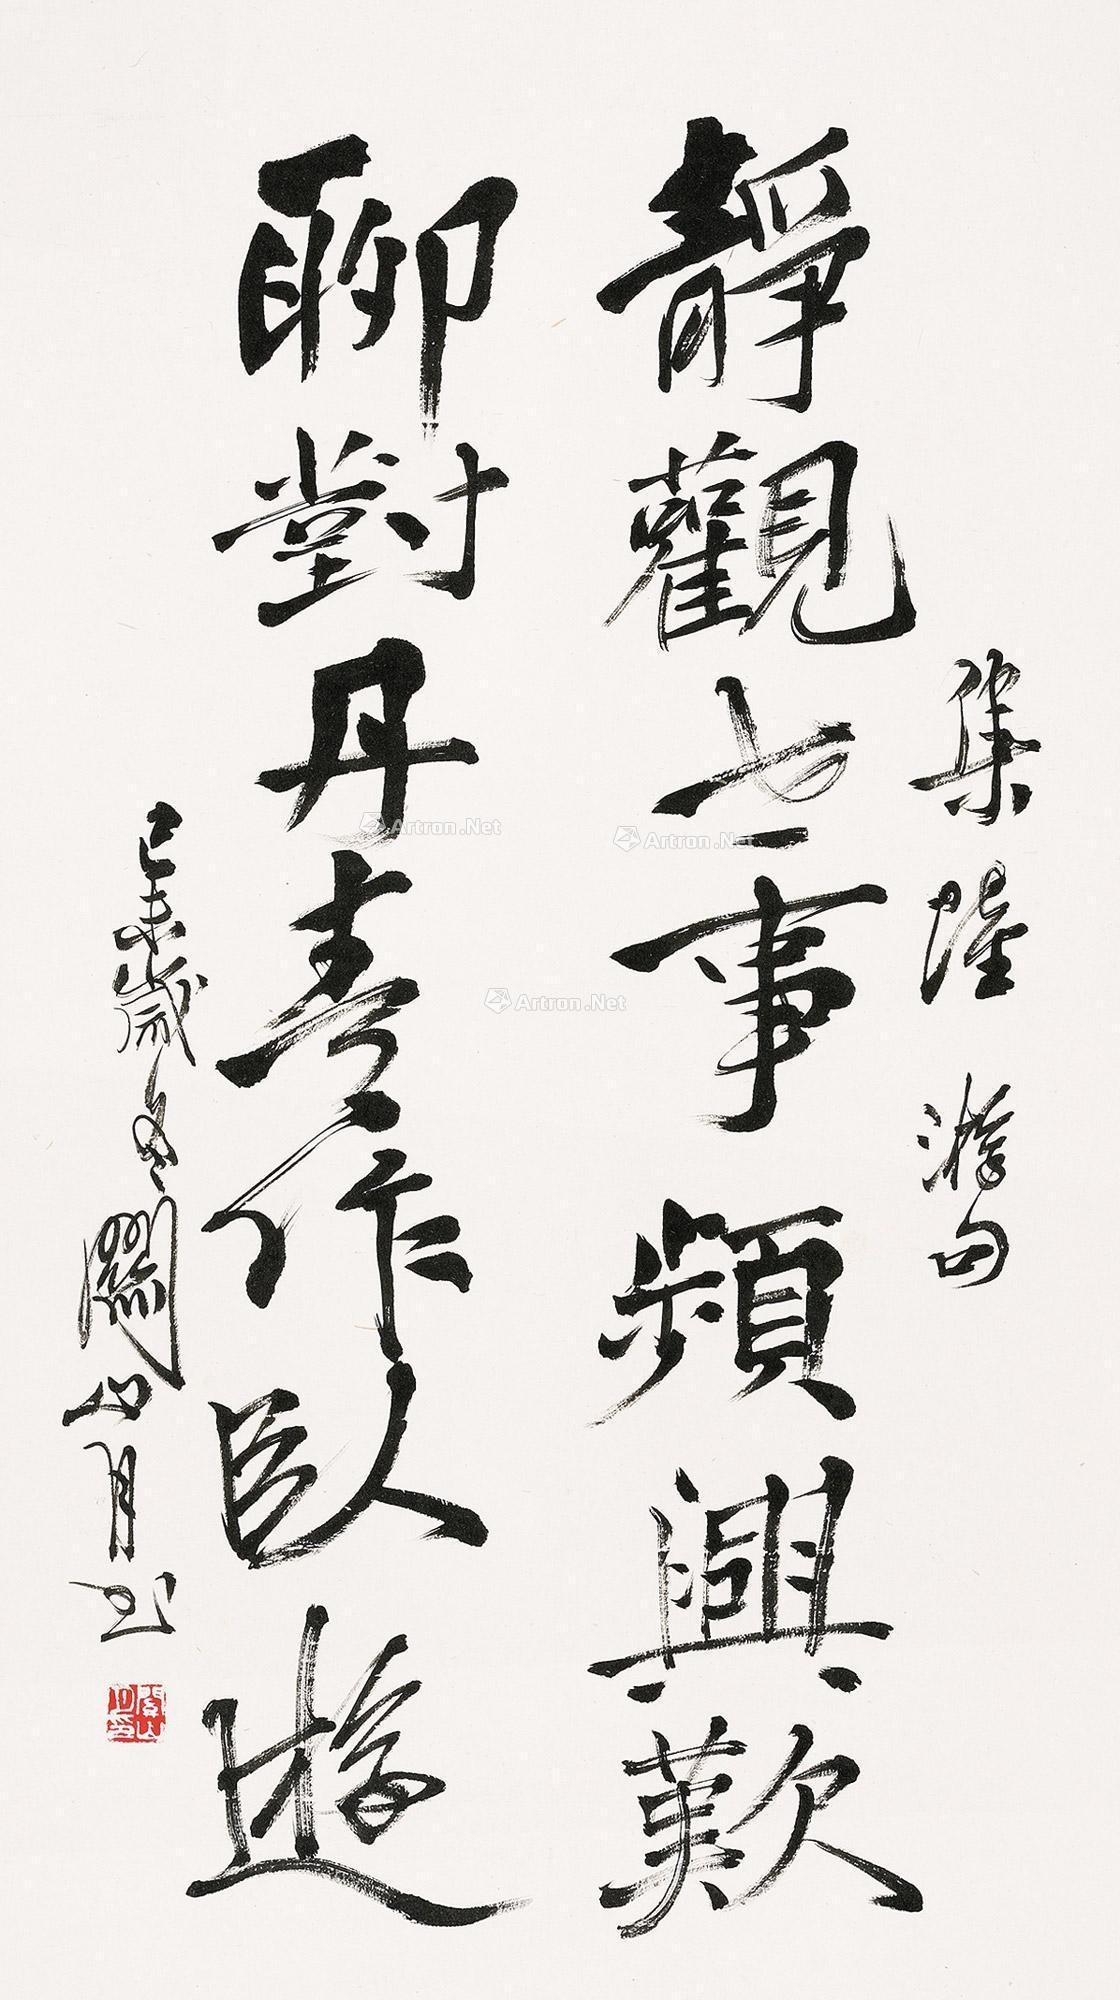 集陸游句
靜觀世事頻興歎
聊對丹青作臥遊
己未歲冬關山月书
關山月印
Artron.Net
Artron.Net
Artron.Net